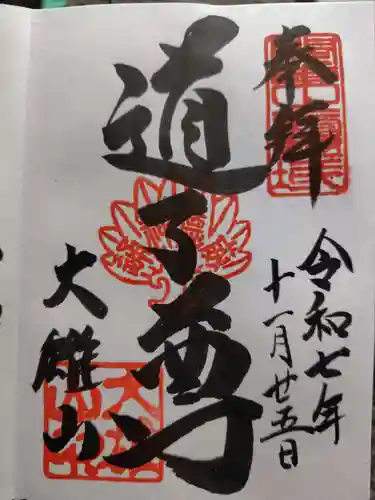 奉拝
令和七年
十一月廿五日
道了尊
大雄山